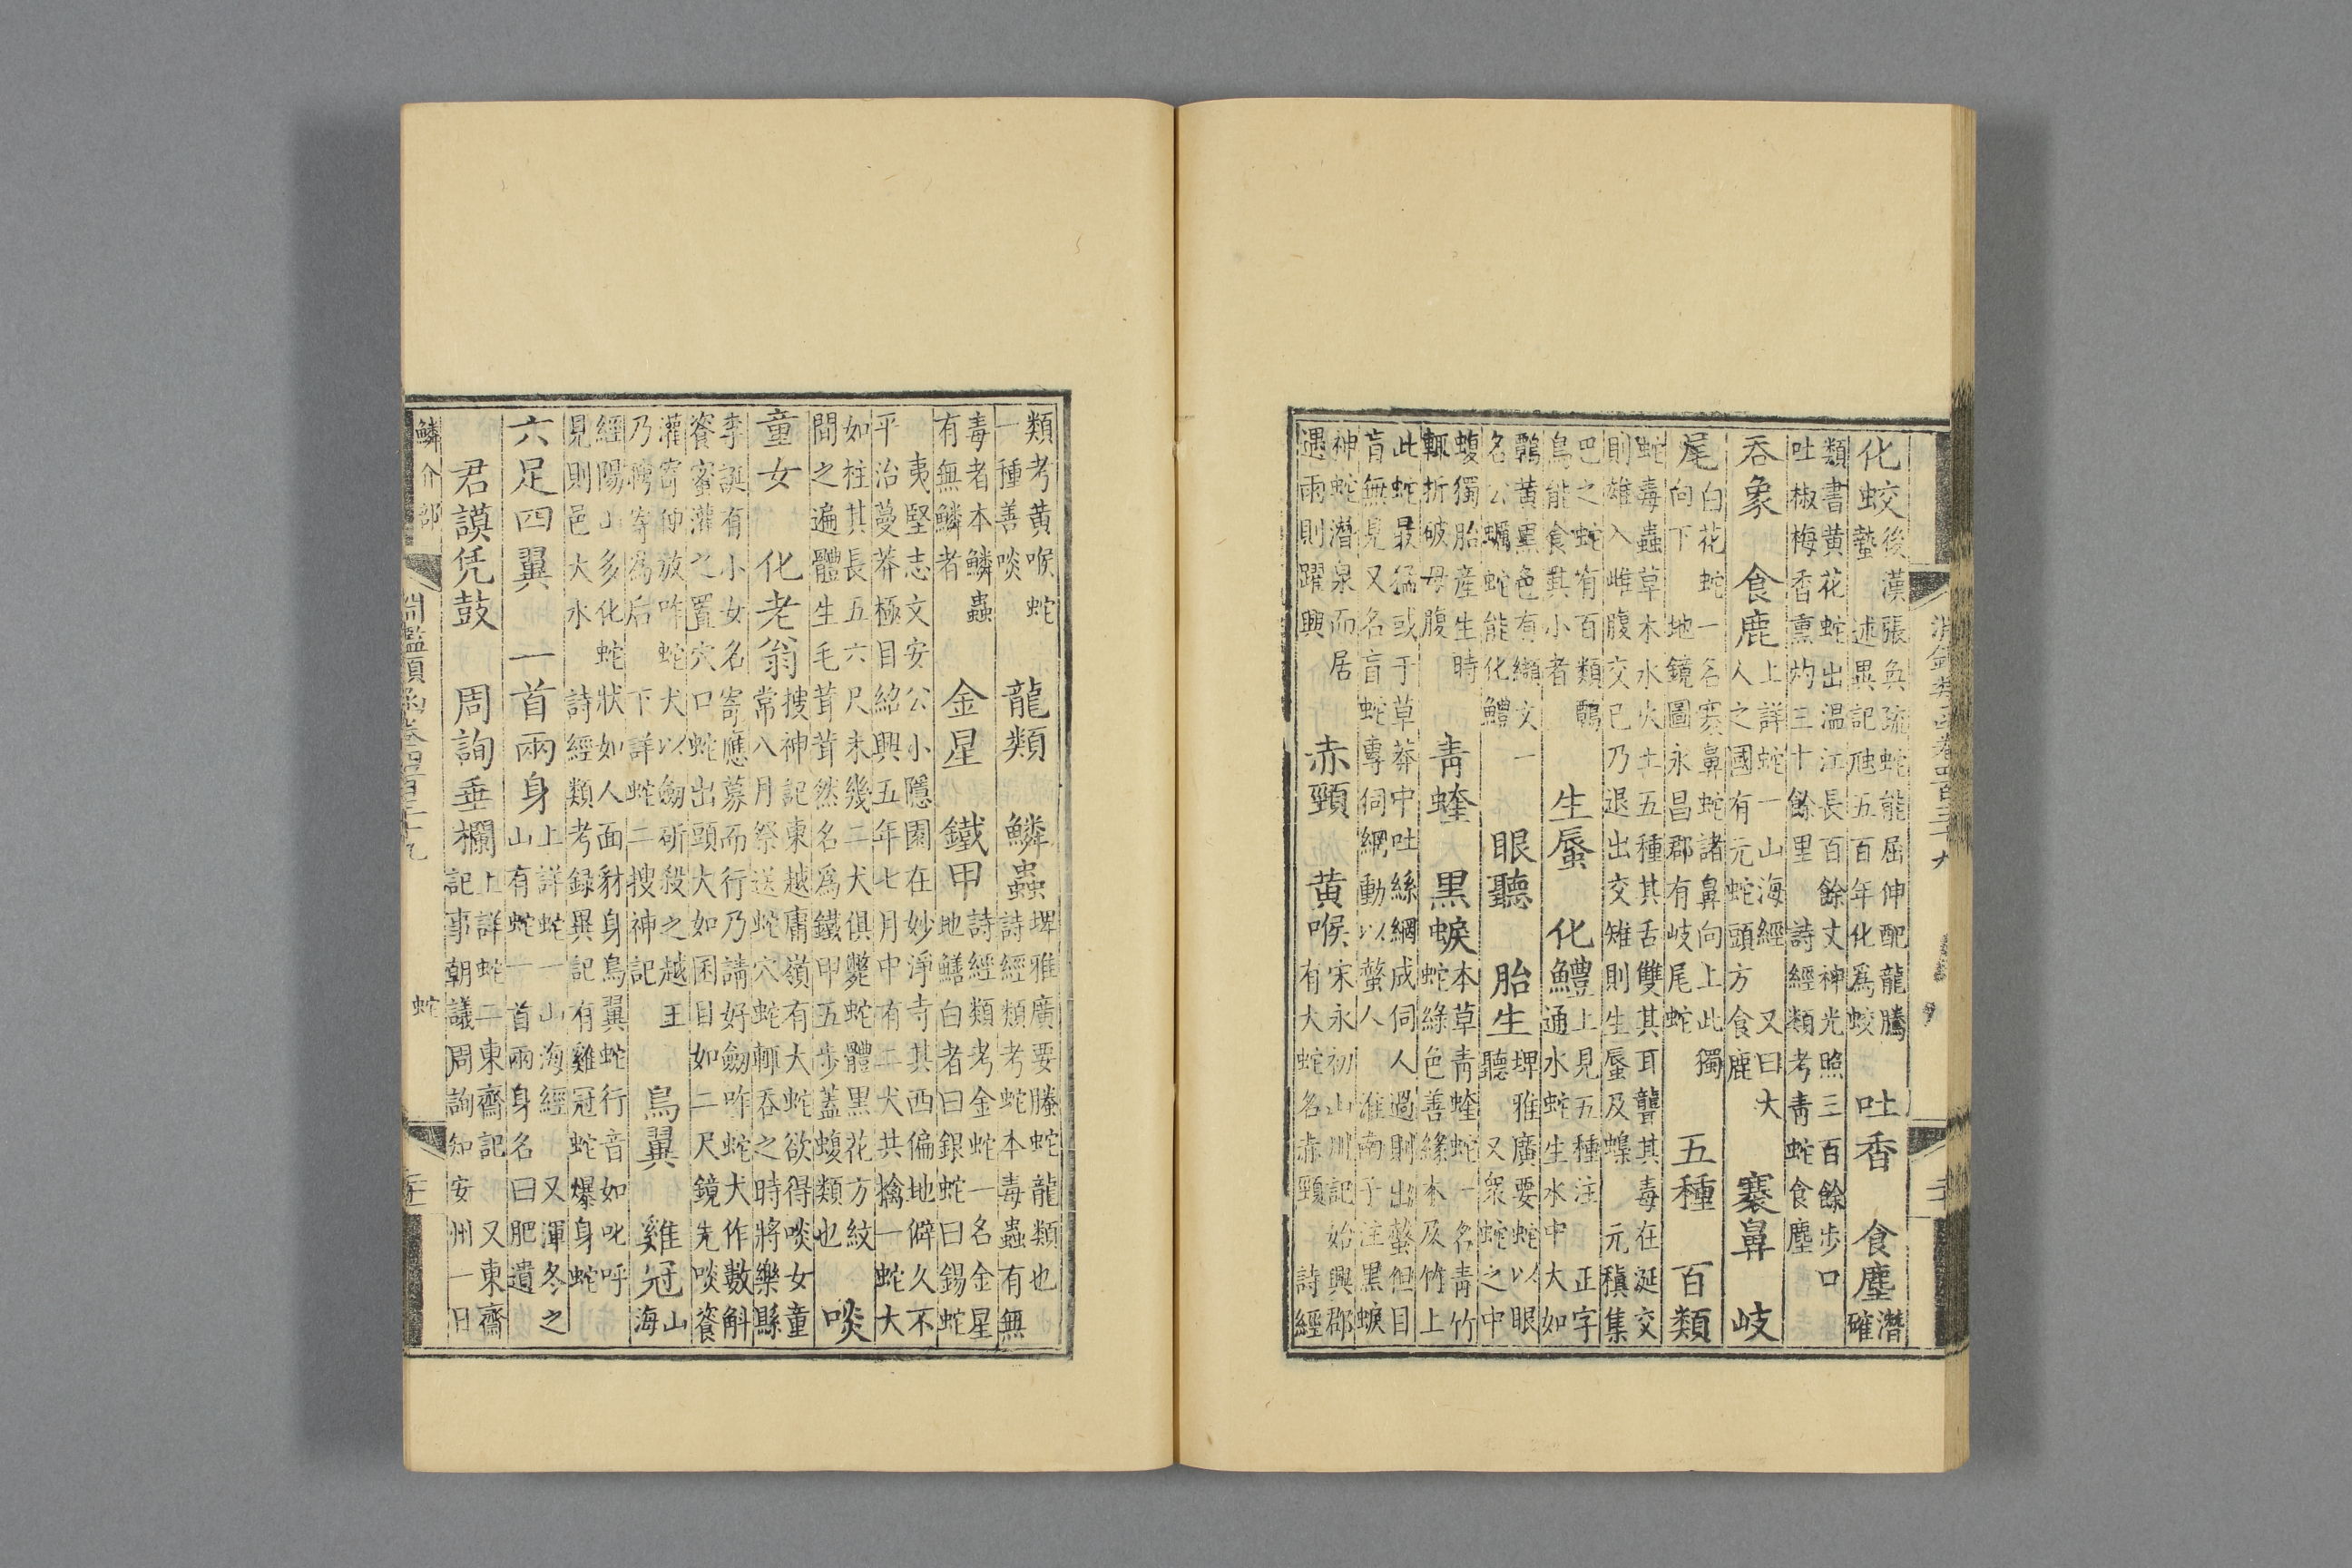 化蛟後漢張奐疏蛇能屈伸配龍騰
蟄　述異記虺五百年化爲蛟
吐香　食塵潛
確
類書黄花蛇出温汪長百餘丈神光照三百餘步口
吐椒梅香熏灼三十餘里　詩經類考青蛇食塵
吞象　食鹿上詳蛇一山海經　又曰大
人之國有元蛇頭方食鹿
褰鼻　岐
尾白花蛇一名褰鼻蛇諸鼻向上此獨
向下　地鏡圖永昌郡有岐尾蛇
五種　百類
蛇毒蟲草木水火土五種其舌雙其耳聾其毒在涎交
則雄入雌腹交已乃退出交雉則生蜃及蟂　元稹集
巴之蛇有百類
鳥能食其小者
生蜃　化鱧上見五種注　正字
通水蛇生水中大如
黄黑色有纈文一
名公蠣蛇能化鱧
眼聽　胎生埤雅廣要蛇以眼
聽　又衆蛇之中
蝮獨胎産生時
輒折破母腹
青蝰　黑蜧本草青蝰蛇一名青竹
蛇綠色善緣木及竹上
此蛇最猛或于草莽中吐絲網成伺人過則出螫但目
盲無見又名盲蛇專伺網動以螫人　淮南子注黑蜧
神蛇潛泉而居
遇雨則躍興
赤頸　黄喉宋永初山川記始興郡
有大蛇名赤頸　詩經
類考黄喉蛇
一種善啖
龍類　鱗蟲埤雅廣要騰蛇龍類也
詩經類考蛇本毒蟲有無
毒者本鱗蟲
有無鱗者
金星　鐵甲詩經類考金蛇一名金星
地鱔白者曰銀蛇曰錫蛇
夷堅志文安公小隱園在妙淨寺其西偏地僻久不
平治蔓莽極目紹興五年七月中有二犬共擒一蛇大
如柱其長五六尺未幾二犬俱斃蛇體黑花方紋
間之遍體生毛茸茸然名爲鐵甲五步蓋蝮類也
啖
童女　化老翁搜神記東越庸嶺有大蛇欲得啖女童
常八月祭送蛇穴蛇輒吞之時將樂縣
李誕有小女名寄應募而行乃請好劒咋蛇犬作數斛
餈蜜灌之置穴口蛇出頭大如囷目如二尺鏡先啖餈
灌寄伸放咋蛇犬以劒斫殺之越王
乃聘寄爲后　下詳蛇二搜神記
鳥翼　雞冠山
海
經陽山多化蛇狀如人面豺身鳥翼蛇行音如叱呼
見則邑大水　詩經類考録異記有雞冠蛇爆身蛇
六足四翼　一首兩身上詳蛇一山海經　又渾冬之
山有蛇一首兩身名曰肥遺
君謨凭鼓　周詢垂欄上詳蛇二東齋記　又東齋
記事朝議周詢知安州一日
鱗介部
淵鑑類函卷四百三十九
蛇